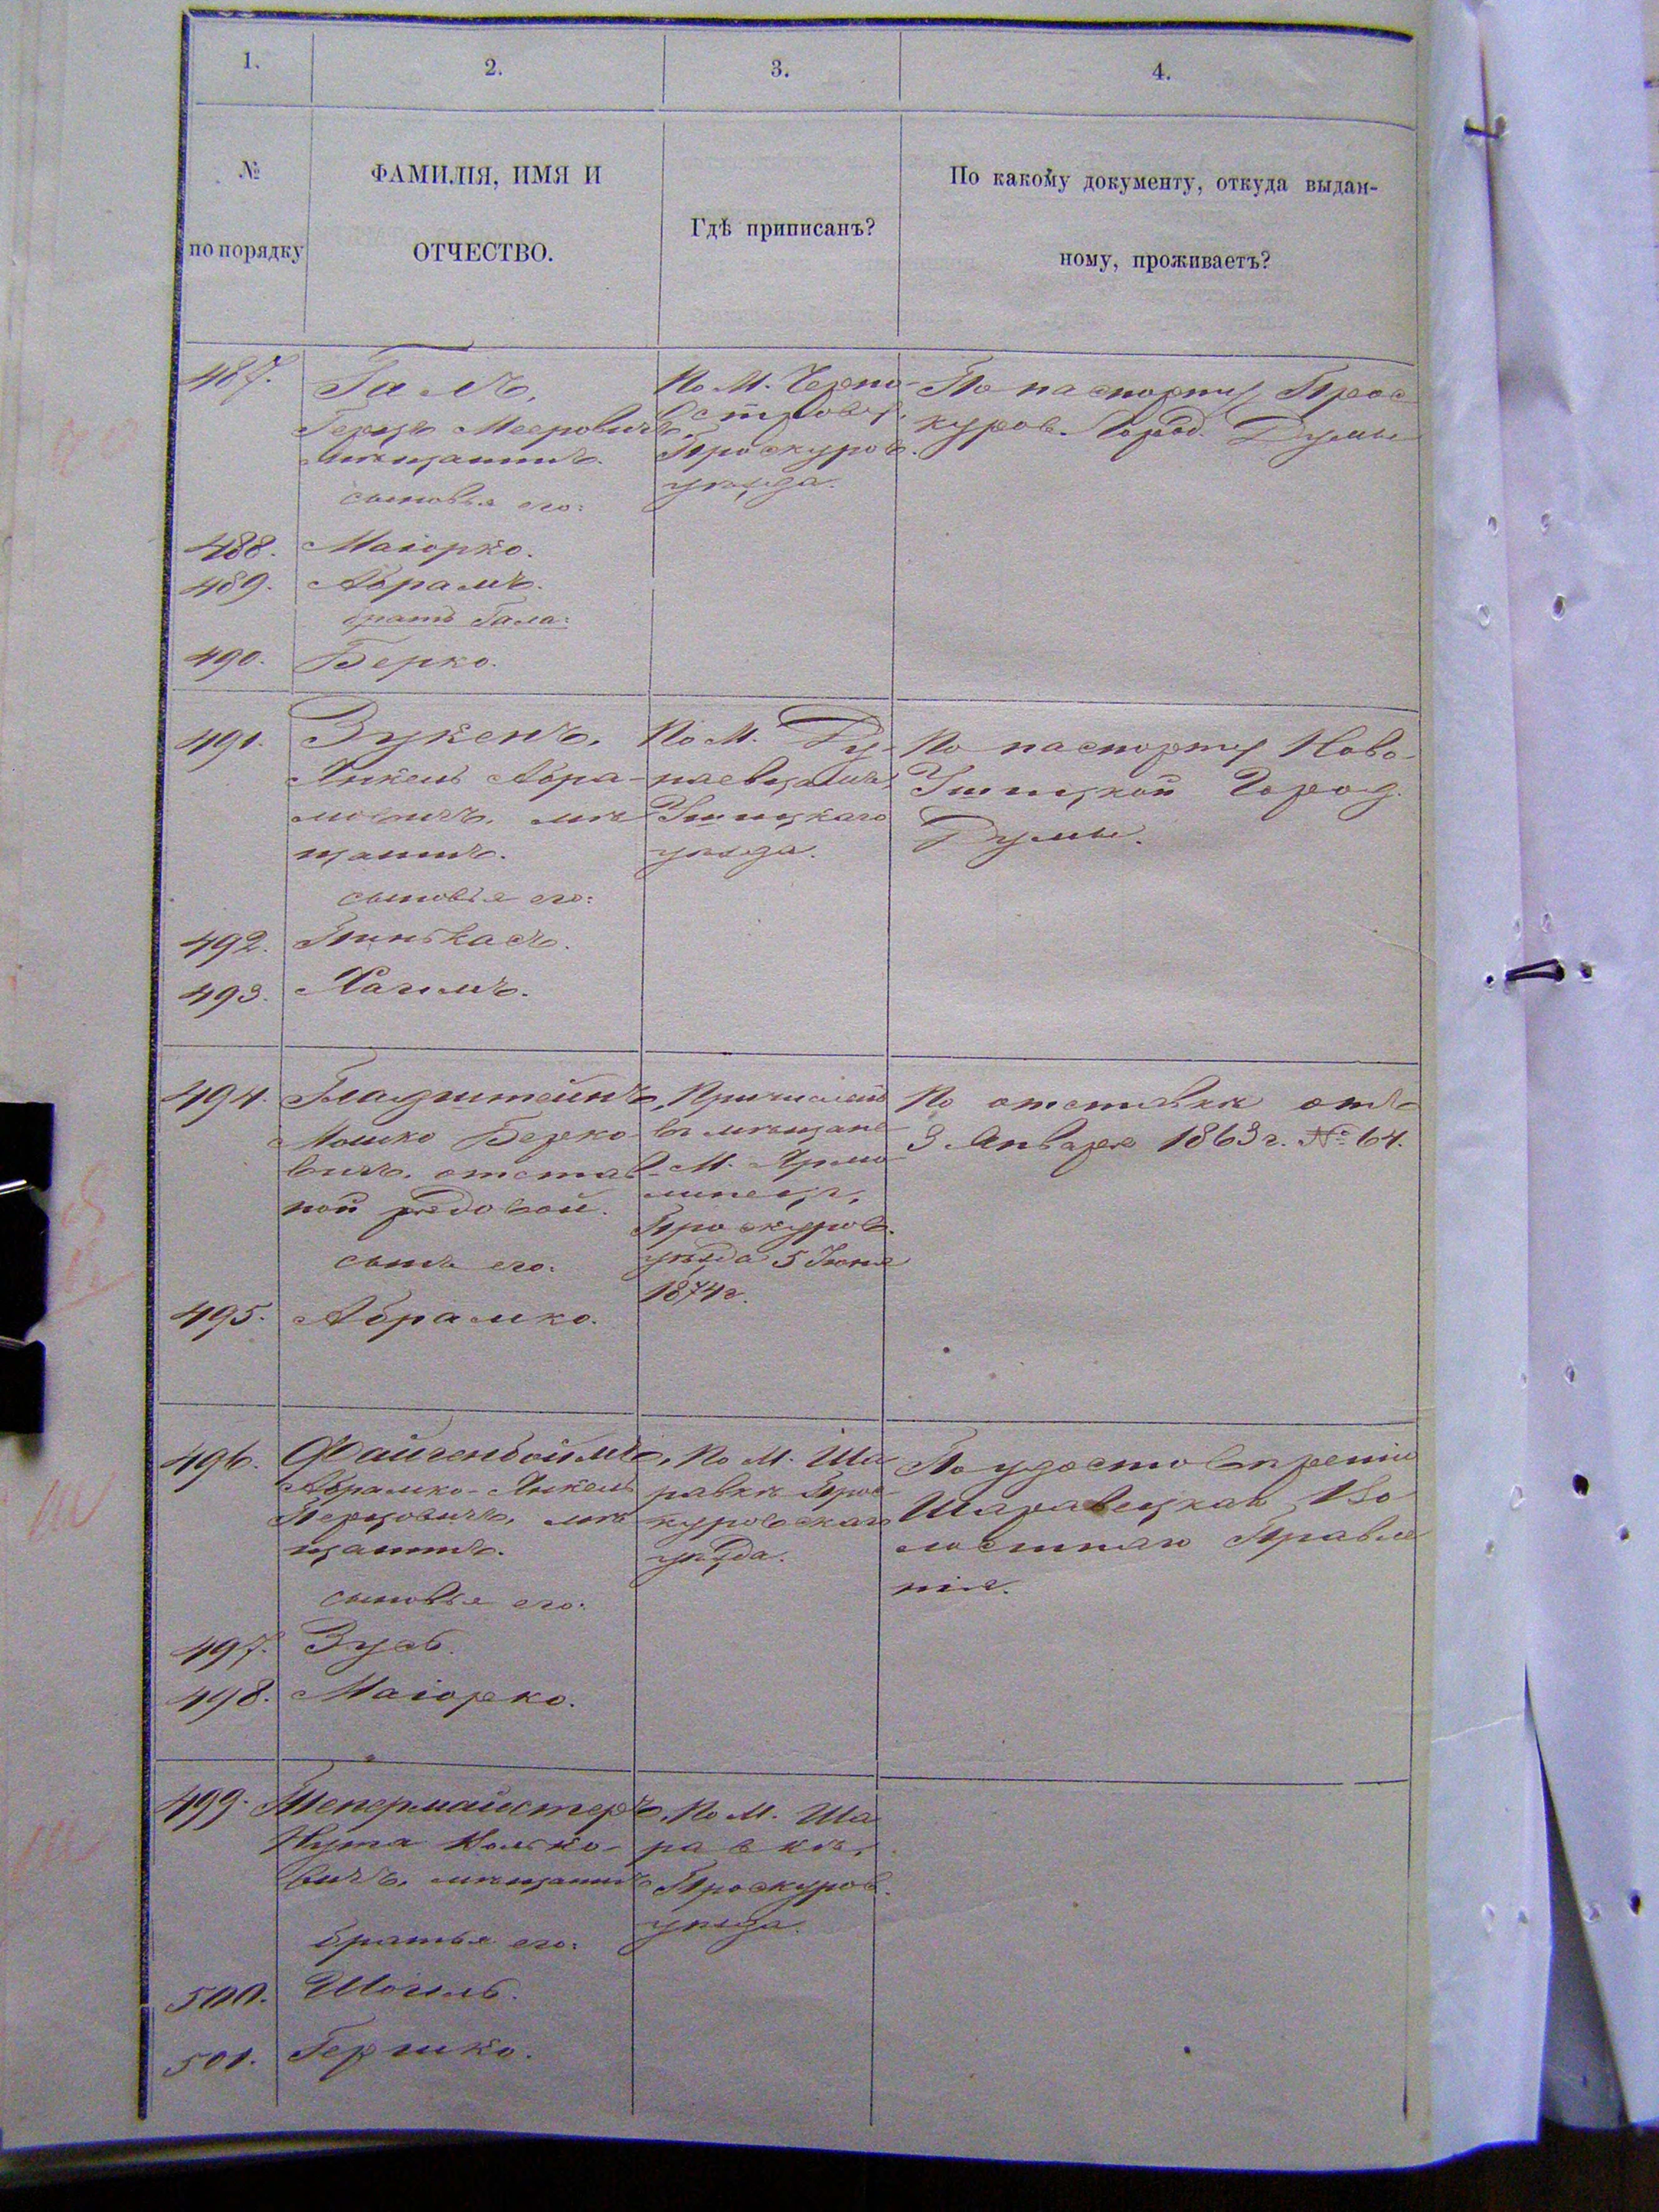 1.
2.
3.
4.
№
по порядку
ФАМИЛІЯ, ИМЯ И
ОТЧЕСТВО.
Гдѣ приписанъ?
По какому документу, откуда выдан-
ному, проживаетъ?
487.
Галъ,
Герцъ Мееровичъ,
мѣщанинъ.
сыновья его:
По М. Черно-
Островѣ,
Проскуров.
уѣзда.
По паспорту Прос
куров. Город. Думы
488. Маіорко.
489. Абрамъ.
братъ Гала:
490. Берко.
491.
Зукенъ,
Янкель Абра-
мовичъ, мѣ
щанинъ.
сыновья его:
По М. Ду-
наевцамъ,
Ушицкаго
уѣзда.
По паспорту Ново-
Ушицкой Город.
Думы.
492. Пинькасъ.
493. Хаимъ.
494.
Гладштейнъ,
Мошко Берко-
вичъ, отстав-
ной рядовой.
сынъ его:
Причисленъ
въ мѣщане
М. Ярмо-
линецъ,
Проскуров.
уѣзда 5 Іюня
1874 г.
По отставкѣ отъ
3 Января 1863 г. № 64.
495. Абрамко.
496.
Файгенбоймъ,
Абрамко-Янкель
Герцовичъ, мѣ
щанинъ.
сыновья его:
По М. Ша
равкѣ Прос-
куровскаго
уѣзда.
По удостовѣренію
Шаравецкаго Во
лостнаго Правле
нія.
497. Зусь.
498. Маіорко.
499.
Тепермайстеръ,
Нута
вичъ, мѣщанинъ
братья его:
По М. Ша
равкѣ,
Проскуров.
уѣзда.
500. Шоиль.
501. Гершко.